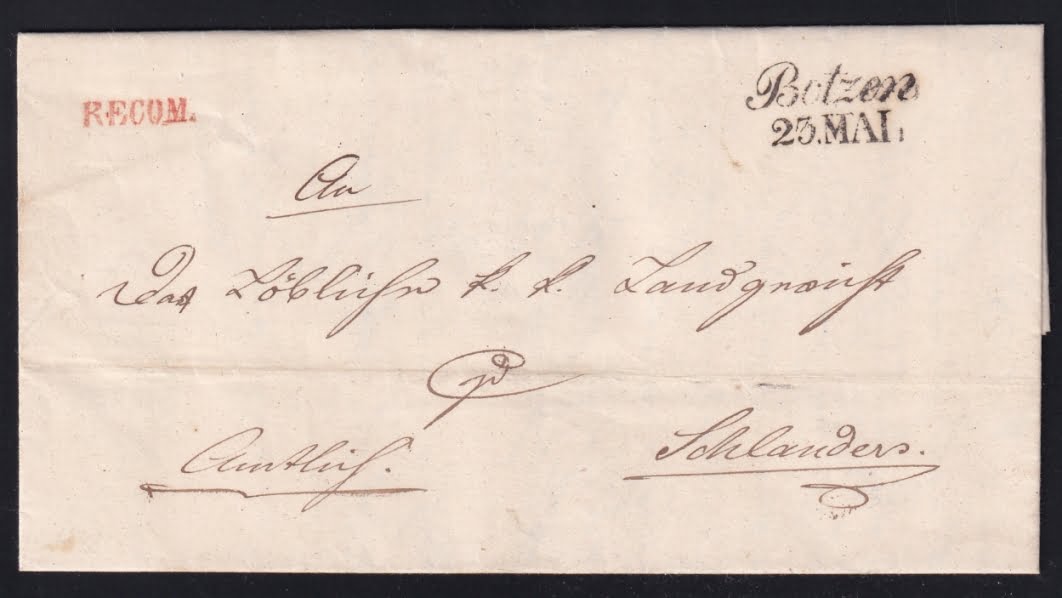 RECOM.
Botzen
23.MAI.
An
Das Löbliche k. k. Landgericht
Amtlich.
Schlanders.